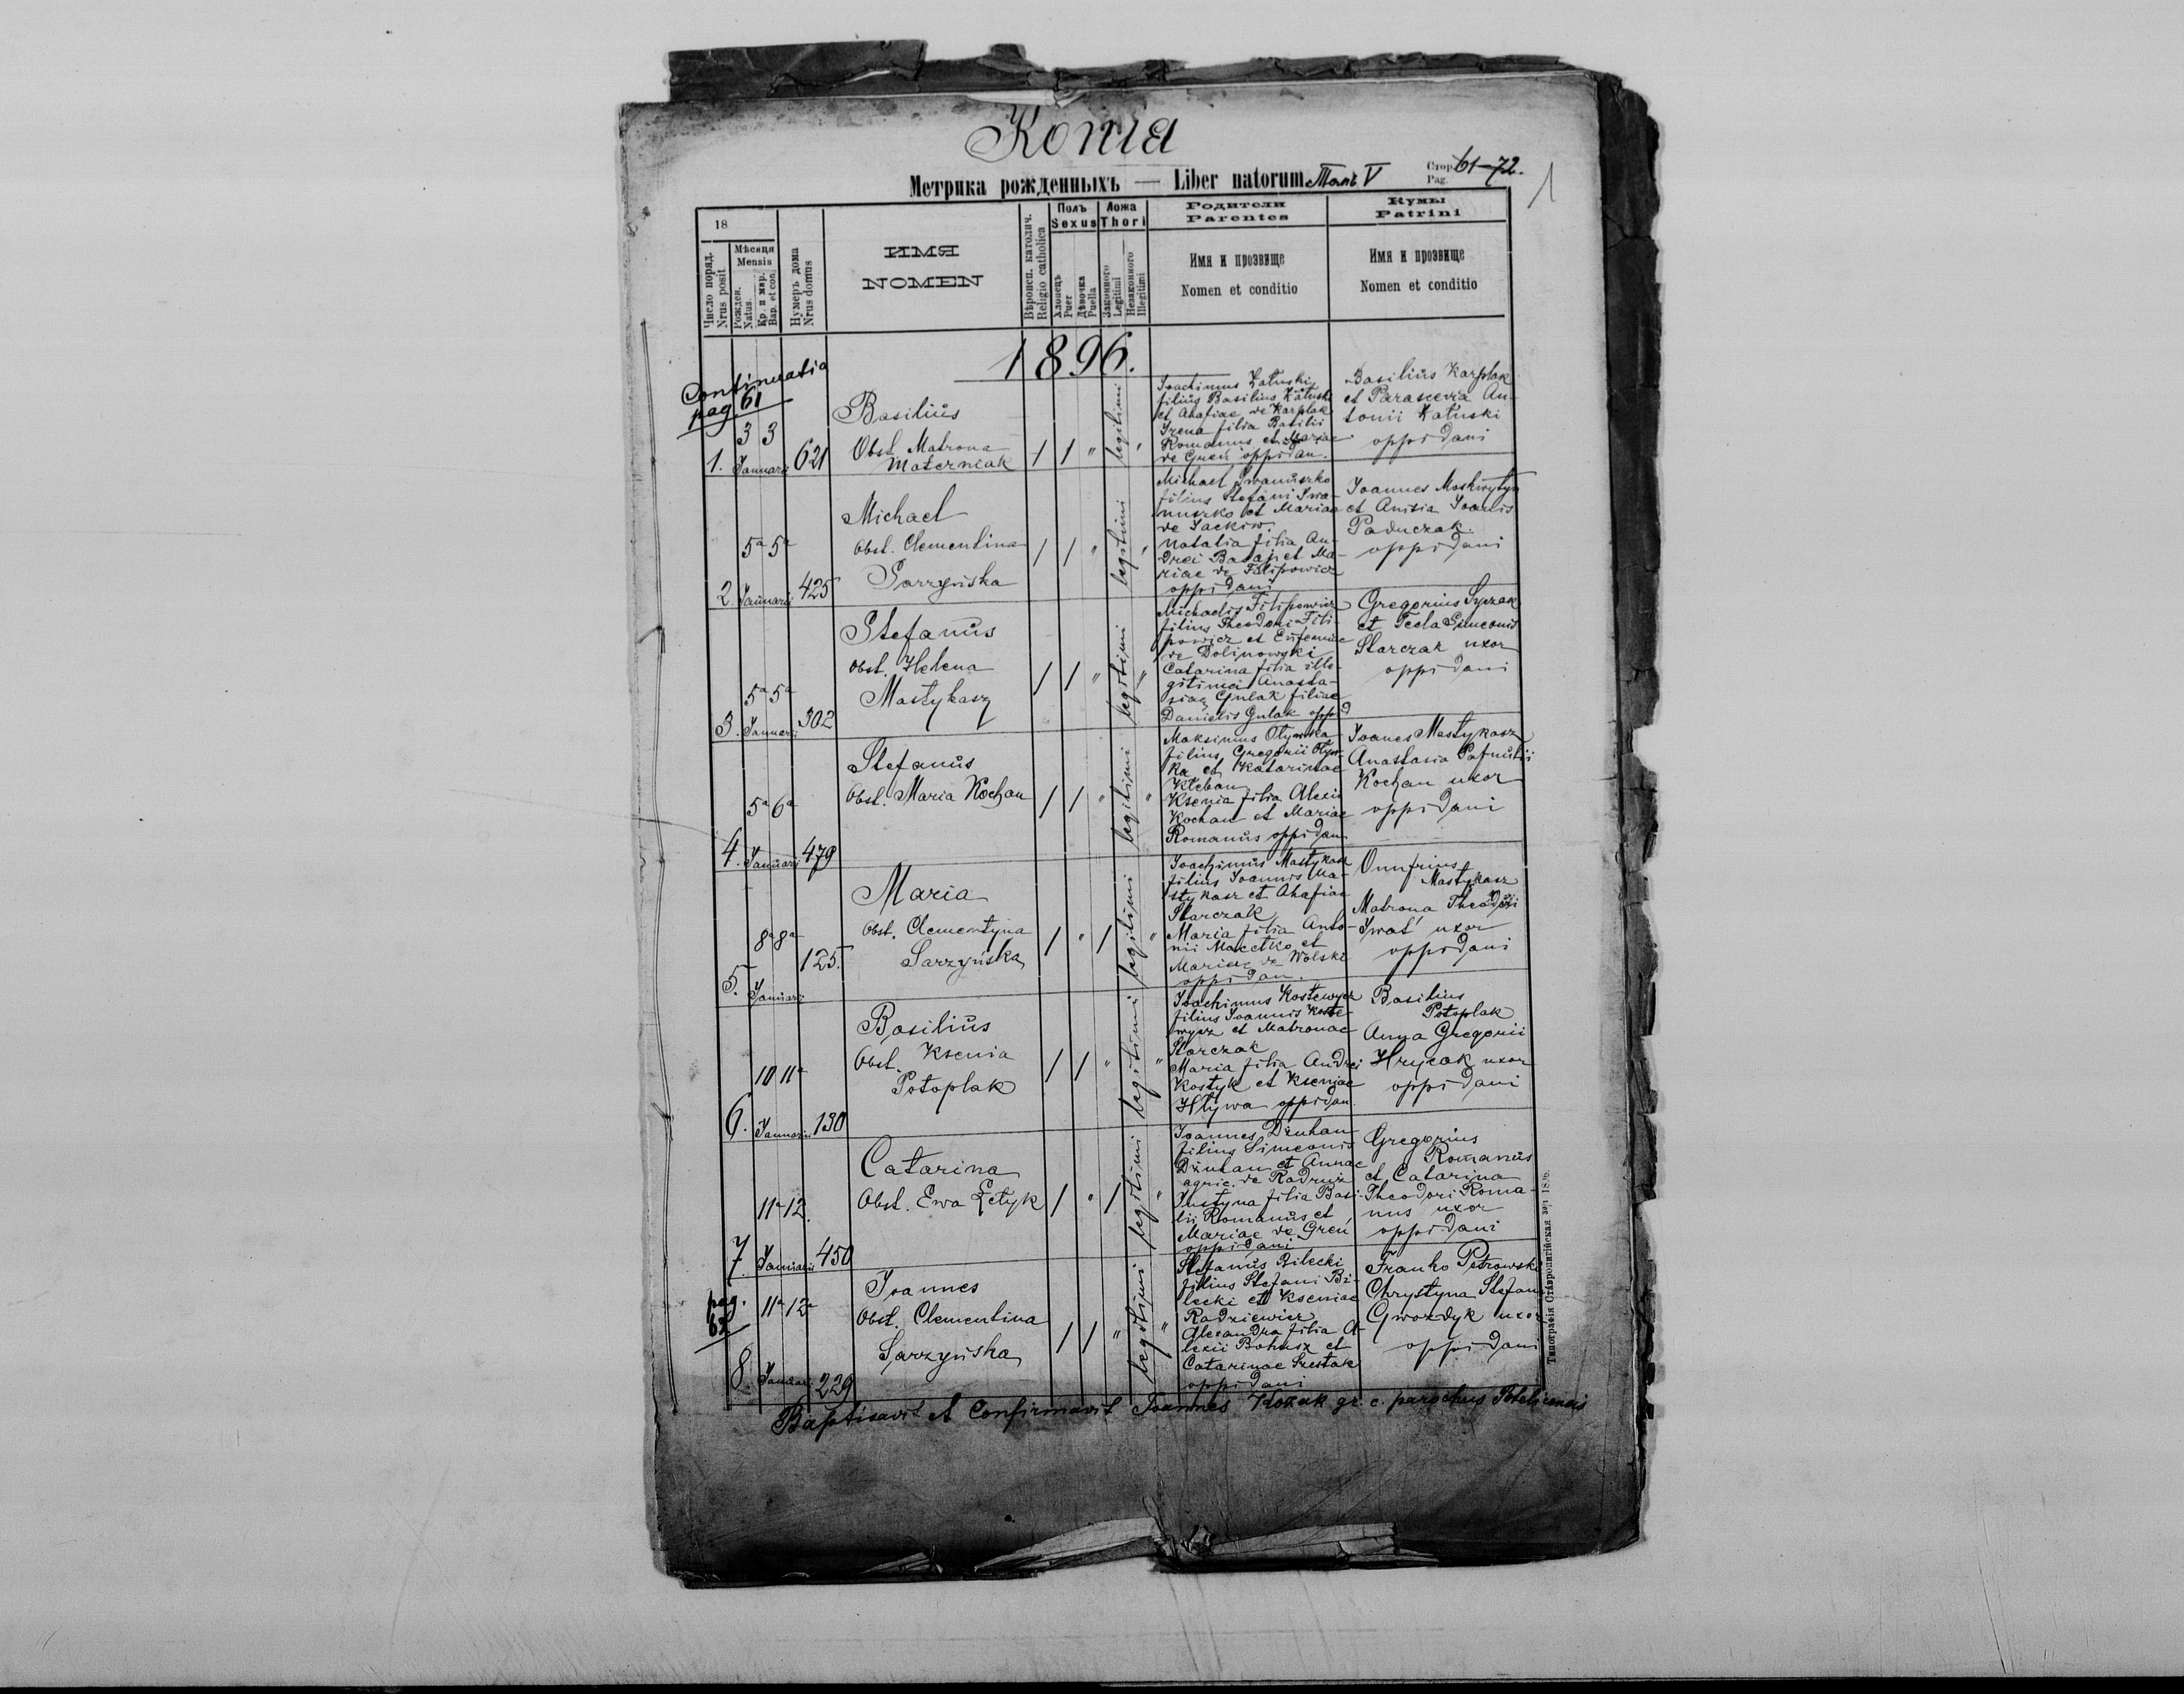 Копія
Метрика рожденныхъ — Liber natorum Томъ V
Стор. 61-72.
Pag.
1
18
Число поряд.
Nrus posit
Мѣсяця
Mensis
Рожден.
Natus.
Кр. и мир.
Bap. et con.
Нумеръ дома
Nrus domus
ИМЯ
NOMEN
Вѣроисп. католич.
Religio catholica
Полъ
Sexus
Хлопецъ
Puer
Дѣвочка
Puella
Ложа
Thori
Законного
Legitimi
Незаконного
Illegitimi
Родители
Parentes
Имя и прозвище
Nomen et conditio
Кумы
Patrini
Имя и прозвище
Nomen et conditio
1896.
Continuatio
pag 61
3 3
1. Januarii 621
Basilius
Obst. Matrona
Materniak
1 1 " legitimi "
Joachimus Załuski
filius Basilius Załuski
et Ahafiae de Karplak
Irena filia Basilii
Romanus et Mariae
de Greń oppidan.
Basilius Karplak
et Parascevia An-
tonii Załuski
oppidani
5a 5a
2. Januarii 425
Michael
Obst. Clementina
Sarzyńska
1 1 " legitimi "
Michael Iwanuszko
filius Stefani Iwa-
nuszko et Mariae
de Jackiw.
Natalia filia An-
drei Badaj et Ma-
riae de Filipowicz
oppidani
Joannes Moskwytyn
et Anisia Joanis
Paduczak.
oppidani
5a 5a
3. Januarii 302
Stefanus
Obst. Helena
Mastykasz
1 1 " legitimi "
Michaelis Filipowicz
filius Theodori Fili-
powicz et Eufemiae
de Dolinowski
Catarina filia ille-
gitima Anasta-
siae Gulak filiae
Danielis Gulak oppid
Gregorius Syczak
et Tecla Simeonis
Starczak uxor
oppidani
5a 6a
4. Januarii 479
Stefanus
Obst. Maria Kochan
1 1 " legitimi "
Maksimus Olynka
filius Gregorii Olyn-
ka et Katarinae
Kleban
Ksenia filia Alexii
Kochan et Mariae
Romanus oppidan
Joanes Mastykasz
Anastasia Pafnutii
Kochan uxor
oppidani
8a 8a
5. Januarii 125.
Maria
Obst. Clementyna
Sarzyńska
1 " 1 legitimi "
Joachimus Mastykasz
filius Joannis Ma-
stykasz et Ahafiae
Starczak
Maria filia Anto-
nii Macetko et
Mariae de Wolski
oppidan.
Onufrius
Mastykasz
Matrona Theodori
Iwat' uxor
oppidani
10 11a
6. Januarii 130
Basilius
Obst. Ksenia
Potoplak
1 1 " legitimi "
Joachimus Kostewycz
filius Joannis Koste-
wycz et Matronae
Starczak
Maria filia Andrei
Kostyk et Kseniae
Hlywa oppidan.
Basilius
Potoplak
Anna Gregorii
Hrycak uxor
oppidani
11a 12.
7. Januarii 450
Catarina
Obst. Ewa Łetyk
1 " 1 legitimi "
Joannes Dżuhan
filius Simeonis
Dżuhan et Annae
agric. de Radruż
Justyna filia Basi-
lii Romanus et
Mariae de Greń
oppidani
Gregorius
Romanus
et Catarina
Theodori Roma-
nus uxor
oppidani
pag. 62
11a 12a
8. Januarii 229
Joannes
Obst. Clementina
Sarzyńska
1 1 " legitimi "
Stefanus Bilecki
filius Stefani Bi-
lecki et Kseniae
Radziewicz
Alexandra filia A-
lexii Bohusz et
Catarinae Szestak
oppidani
Franko Petrowski
Chrystyna Stefani
Gwozdyk uxor
oppidani
Baptisavit et Confirmavit Joannes Kozak gr. c. parochus Potelicensis
Типографія Ставропигійская